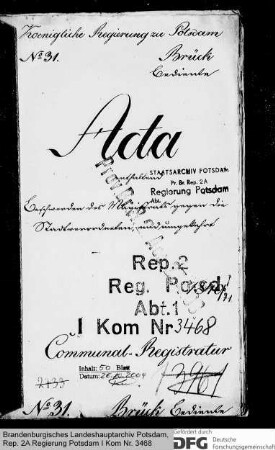 Koenigliche Regierung zu Potsdam
No. 31.
Brück
Bediente
Acta
enthaltend
STAATSARCHIV POTSDAM
Pr. Br. Rep. 2A
Regierung Potsdam
Beschwerden des Magistrats gegen die
Stadtverordneten und umgekehrt
Rep. 2
Reg. Potsd.
Abt. 1
I Kom Nr 3468
Communal-Registratur
Inhalt: 50 Blatt
Datum:
No. 31.
Brück
Bediente
Brandenburgisches Landeshauptarchiv Potsdam,
Rep. 2A Regierung Potsdam I Kom Nr. 3468
Gefördert durch
DFG
Deutsche
Forschungsgemeinschaft